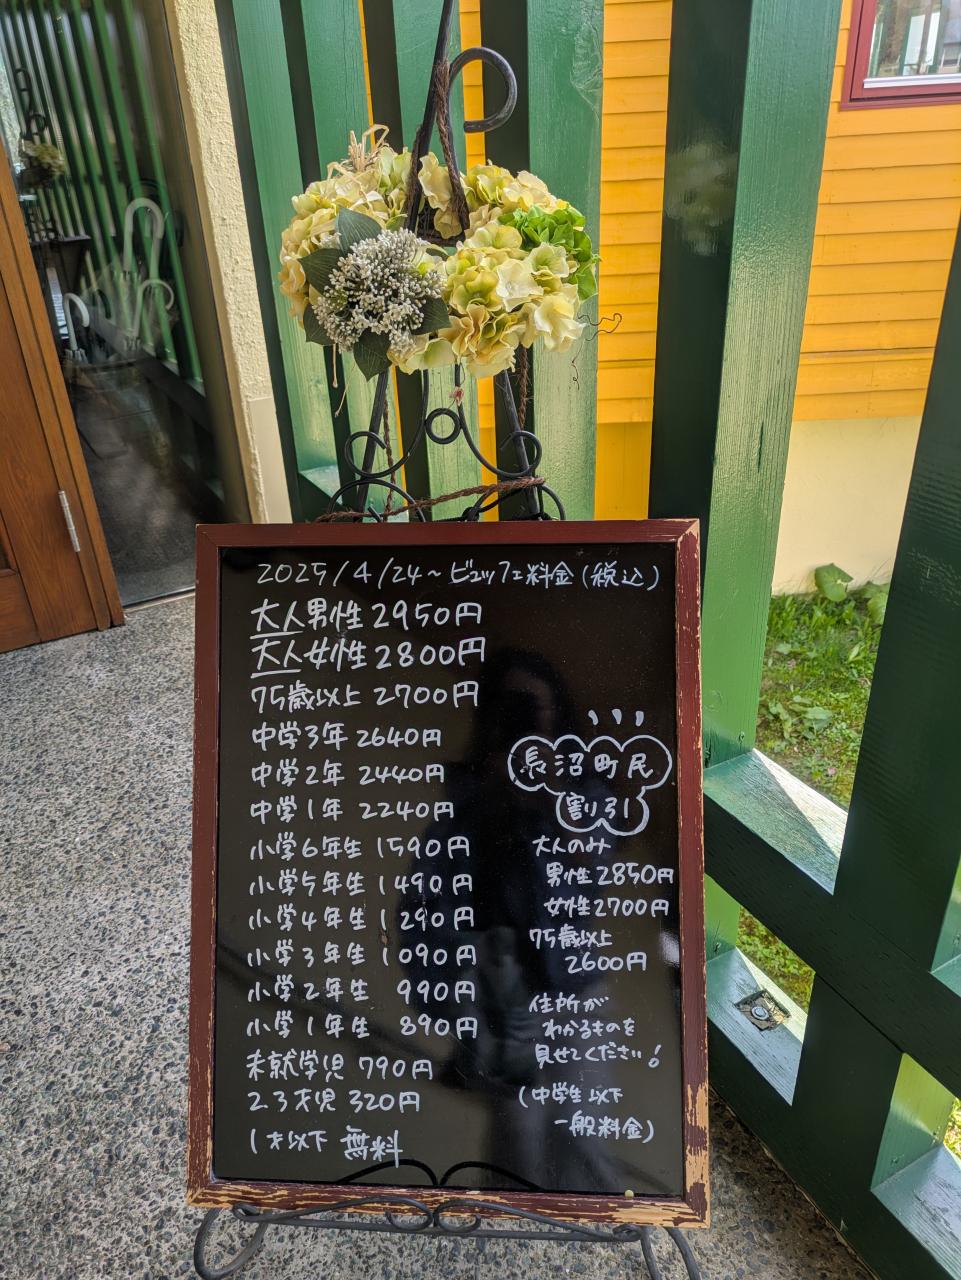 2025/4/24~ビュッフェ料金(税込)
大人男性 2950円
大人女性 2800円
75歳以上 2700円
中学3年 2640円
中学2年 2440円
中学1年 2240円
小学6年生 1590円
小学5年生 1490円
小学4年生 1290円
小学3年生 1090円
小学2年生 990円
小学1年生 890円
未就学児 790円
2.3才児 320円
1才以下 無料
長沼町民
割り引
大人のみ
男性2850円
女性2700円
75歳以上
2600円
住所が
わかるものを
見せてください!
(中学生以下
一般料金)